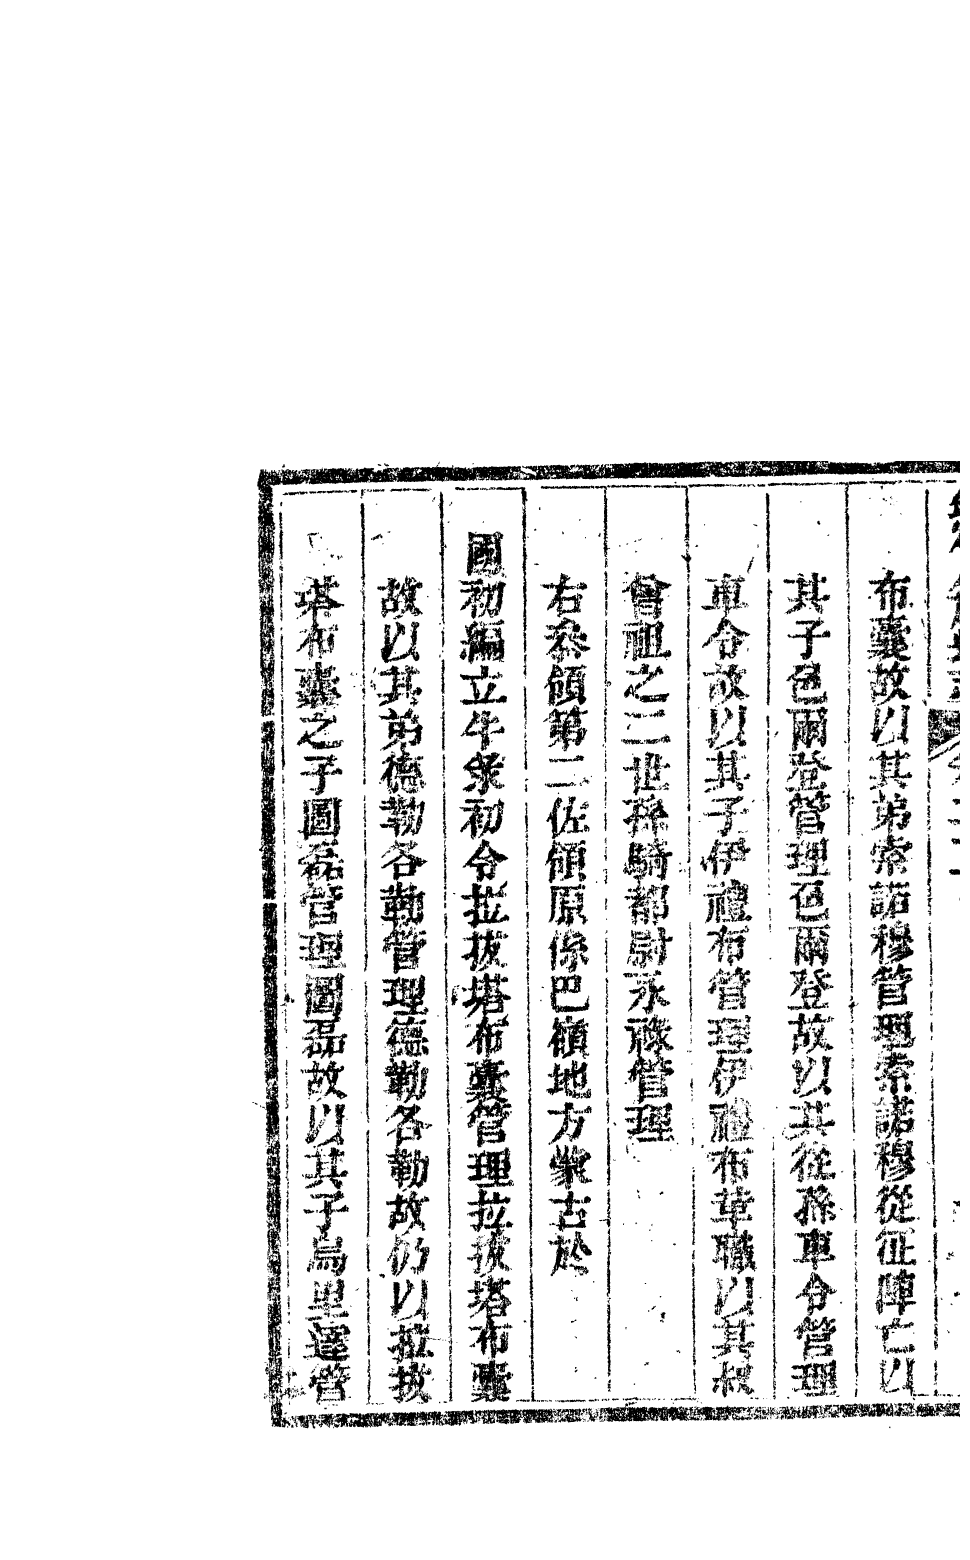 布囊故以其弟索諾穆管理索諾穆從征陣亡以
其子色爾登管理色爾登故以其從孫車令管理
車令故以其子伊禮布管理伊禮布革職以其叔
曾祖之二世孫騎都尉永祿管理
右叅領第二佐領原係巴嶺地方蒙古於
國初編立牛彔初令拉拔塔布囊管理拉拔塔布囊
故以其弟德勒各勒管理德勒各勒故仍以拉拔
塔布囊之子圖磊管理圖磊故以其子烏里運管